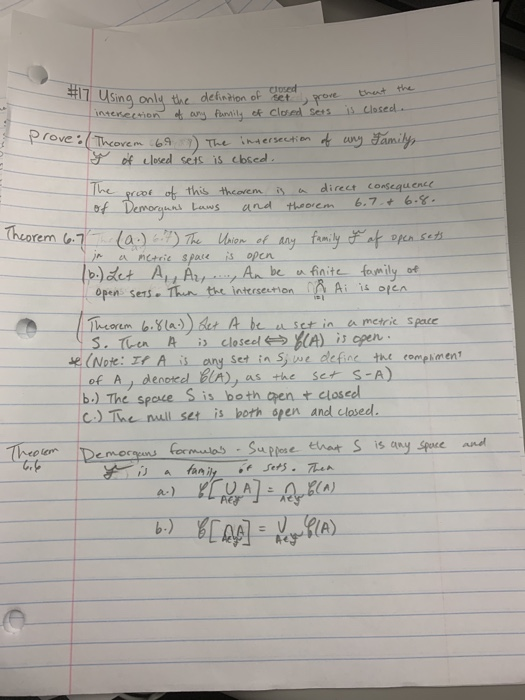 #17 Using only the definition of closed set, prove that the
intersection of any family of closed sets is closed.
Prove: (Theorem 6.9) The intersection of any family
F of closed sets is closed.
The proof of this theorem is a direct consequence
of Demorgans Laws and theorem 6.7 + 6.8.
Theorem 6.7 (a.) The Union of any family F of open sets
in a metric space is open
(b.) Let A₁, A₂, ..., An be a finite family of
open sets. Then the intersection ⋂ⁿᵢ₌₁ Ai is open
(Theorem 6.8(a.)) Let A be a set in a metric space
S. Then A is closed ⟺ C(A) is open.
* (Note: If A is any set in S, we define the compliment
of A, denoted C(A), as the set S-A)
b.) The space S is both open + closed
c.) The null set is both open and closed.
Theorem 6.6 Demorgans formulas - Suppose that S is any space and
F is a family of sets. Then
a.) C[⋃_{A∈F} A] = ⋂_{A∈F} C(A)
b.) C[⋂_{A∈F} A] = ⋃_{A∈F} C(A)